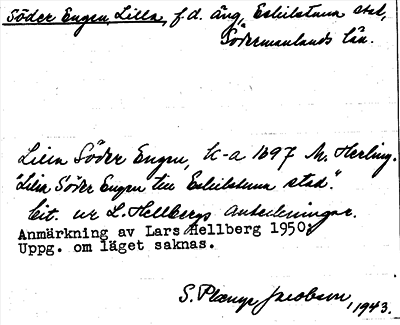 Söder Engen, Lilla, f.d. äng, Eskilstuna stad,
Södermanlands län.
Lilla Söder Engen, K-a 1697 M. Herling.
"Lilla Söder Engen till Eskilstuna stad".
Cit. ur L. Hellbergs anteckningar.
Anmärkning av Lars Hellberg 1950.
Uppg. om läget saknas.
S. Jacobson, 1943.